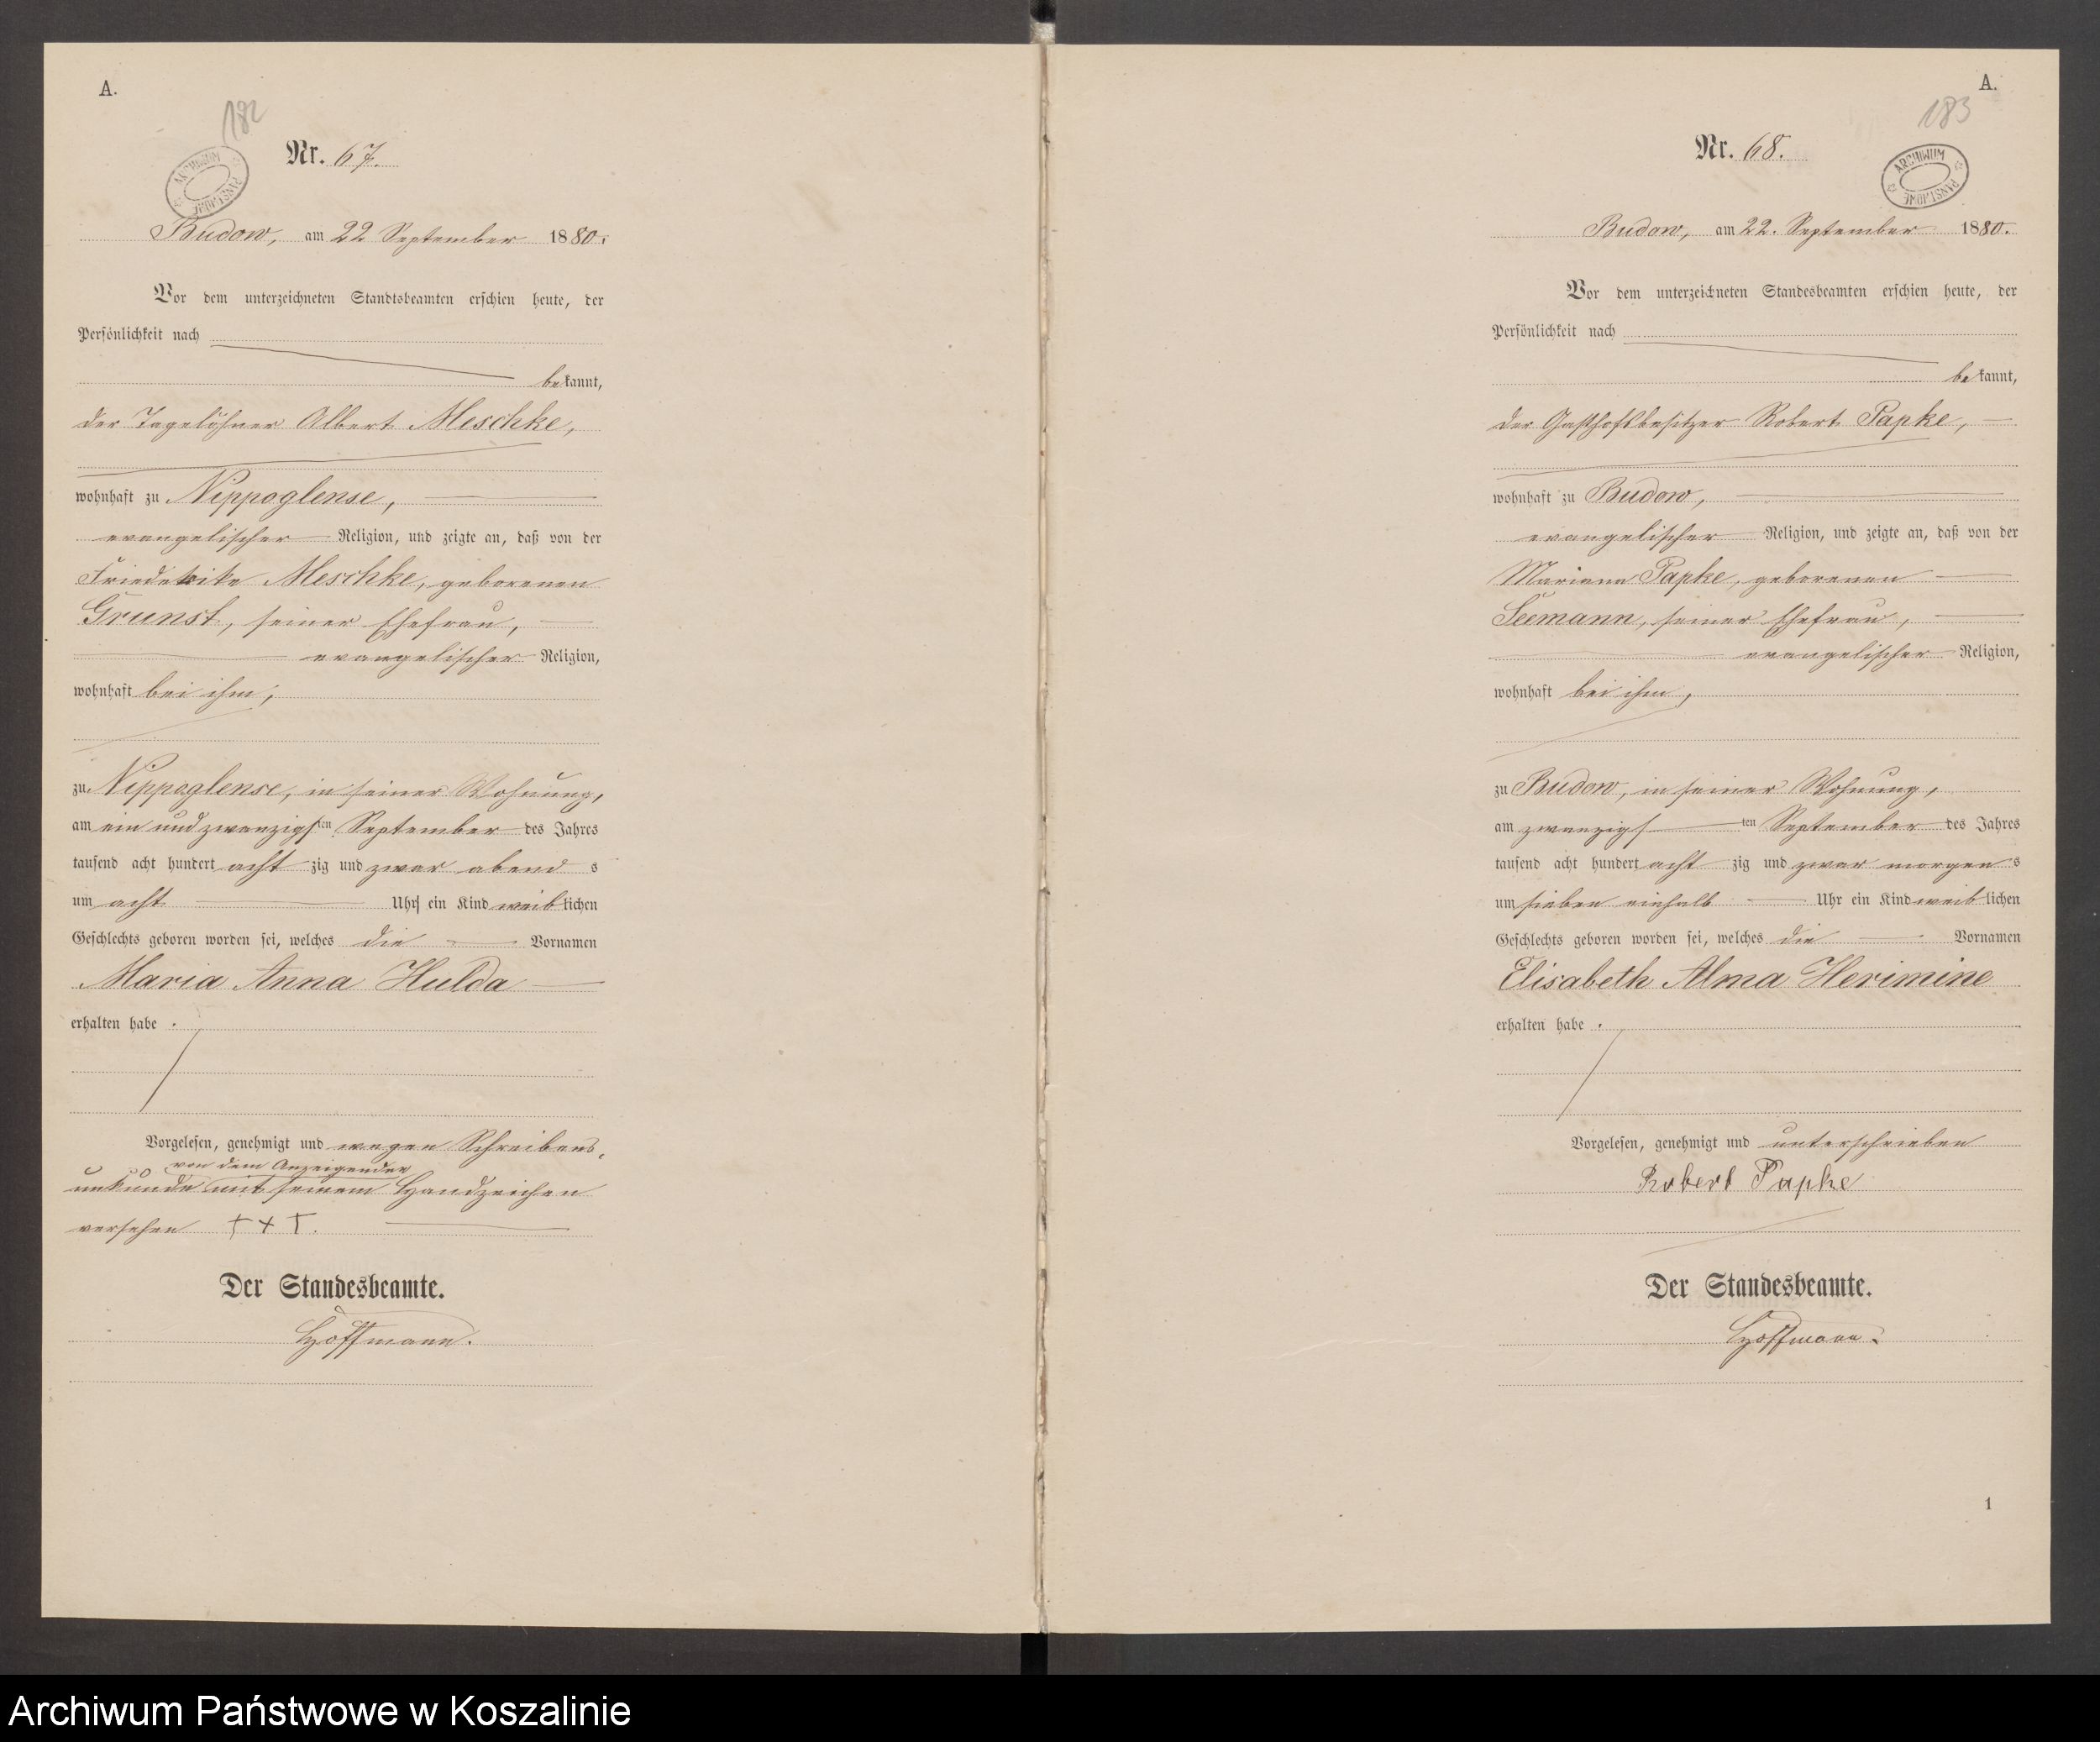 A.
182
Nr. 67.
ARCHIWUM PAŃSTWOWE
Budow, am 22 September 1880.
Vor dem unterzeichneten Standtsbeamten erschien heute, der
Persönlichkeit nach
bekannt,
der Tagelöhner Albert Meschke,
wohnhaft zu Nippoglense,
evangelischer Religion, und zeigte an, daß von der
Friederike Meschke, geborenen
Grunst, seiner Ehefrau,
evangelischer Religion,
wohnhaft bei ihm,
zu Nippoglense, in seiner Wohnung,
am ein und zwanzigsten September des Jahres
tausend acht hundert achtzig und zwar abends
um acht Uhr ein Kind weiblichen
Geschlechts geboren worden sei, welches die Vornamen
Maria Anna Hulda
erhalten habe.
Vorgelesen, genehmigt und wegen Schreibens-
von dem Anzeigender
unkunde mit seinem Handzeichen
versehen † + †.
Der Standesbeamte.
Hoffmann.
A.
183
Nr. 68.
ARCHIWUM PAŃSTWOWE
Budow, am 22. September 1880.
Vor dem unterzeichneten Standesbeamten erschien heute, der
Persönlichkeit nach
bekannt,
der Gasthofsbesitzer Robert Papke,
wohnhaft zu Budow,
evangelischer Religion, und zeigte an, daß von der
Mariann Papke, geborenen
Seemann, seiner Ehefrau,
evangelischer Religion,
wohnhaft bei ihm,
zu Budow, in seiner Wohnung,
am zwanzigsten September des Jahres
tausend acht hundert achtzig und zwar morgens
um sieben einhalb Uhr ein Kind weiblichen
Geschlechts geboren worden sei, welches die Vornamen
Elisabeth Alma Herimine
erhalten habe.
Vorgelesen, genehmigt und unterschrieben
Robert Papke
Der Standesbeamte.
Hoffmann.
1
Archiwum Państwowe w Koszalinie